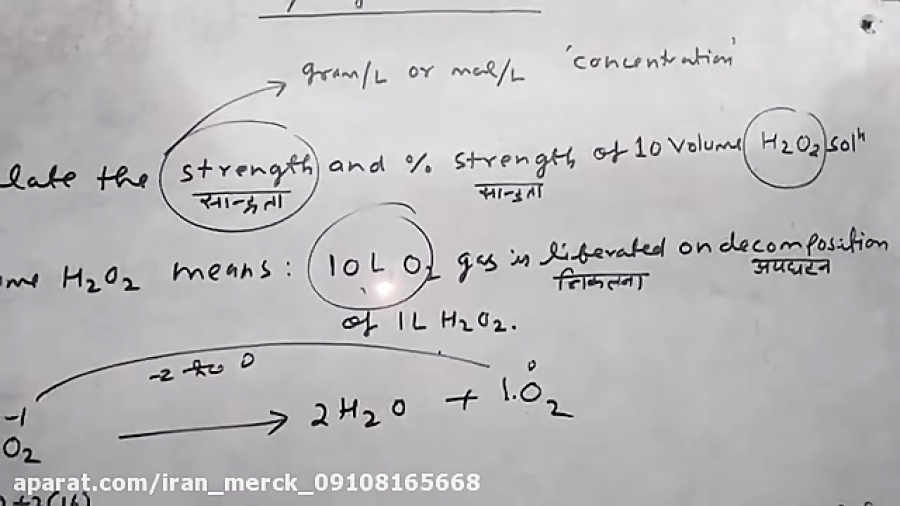 gram/L or mol/L 'concentration'
late the strength and % strength of 10 Volume H2O2 solⁿ
सान्द्रता सान्द्रता
me H2O2 means: 10 L O2 gas is liberated on decomposition
निकलना अपघटन
of 1L H2O2.
-2 से 0
-1 0
O2 → 2H2O + 1.O2
aparat.com/iran_merck_09108165668